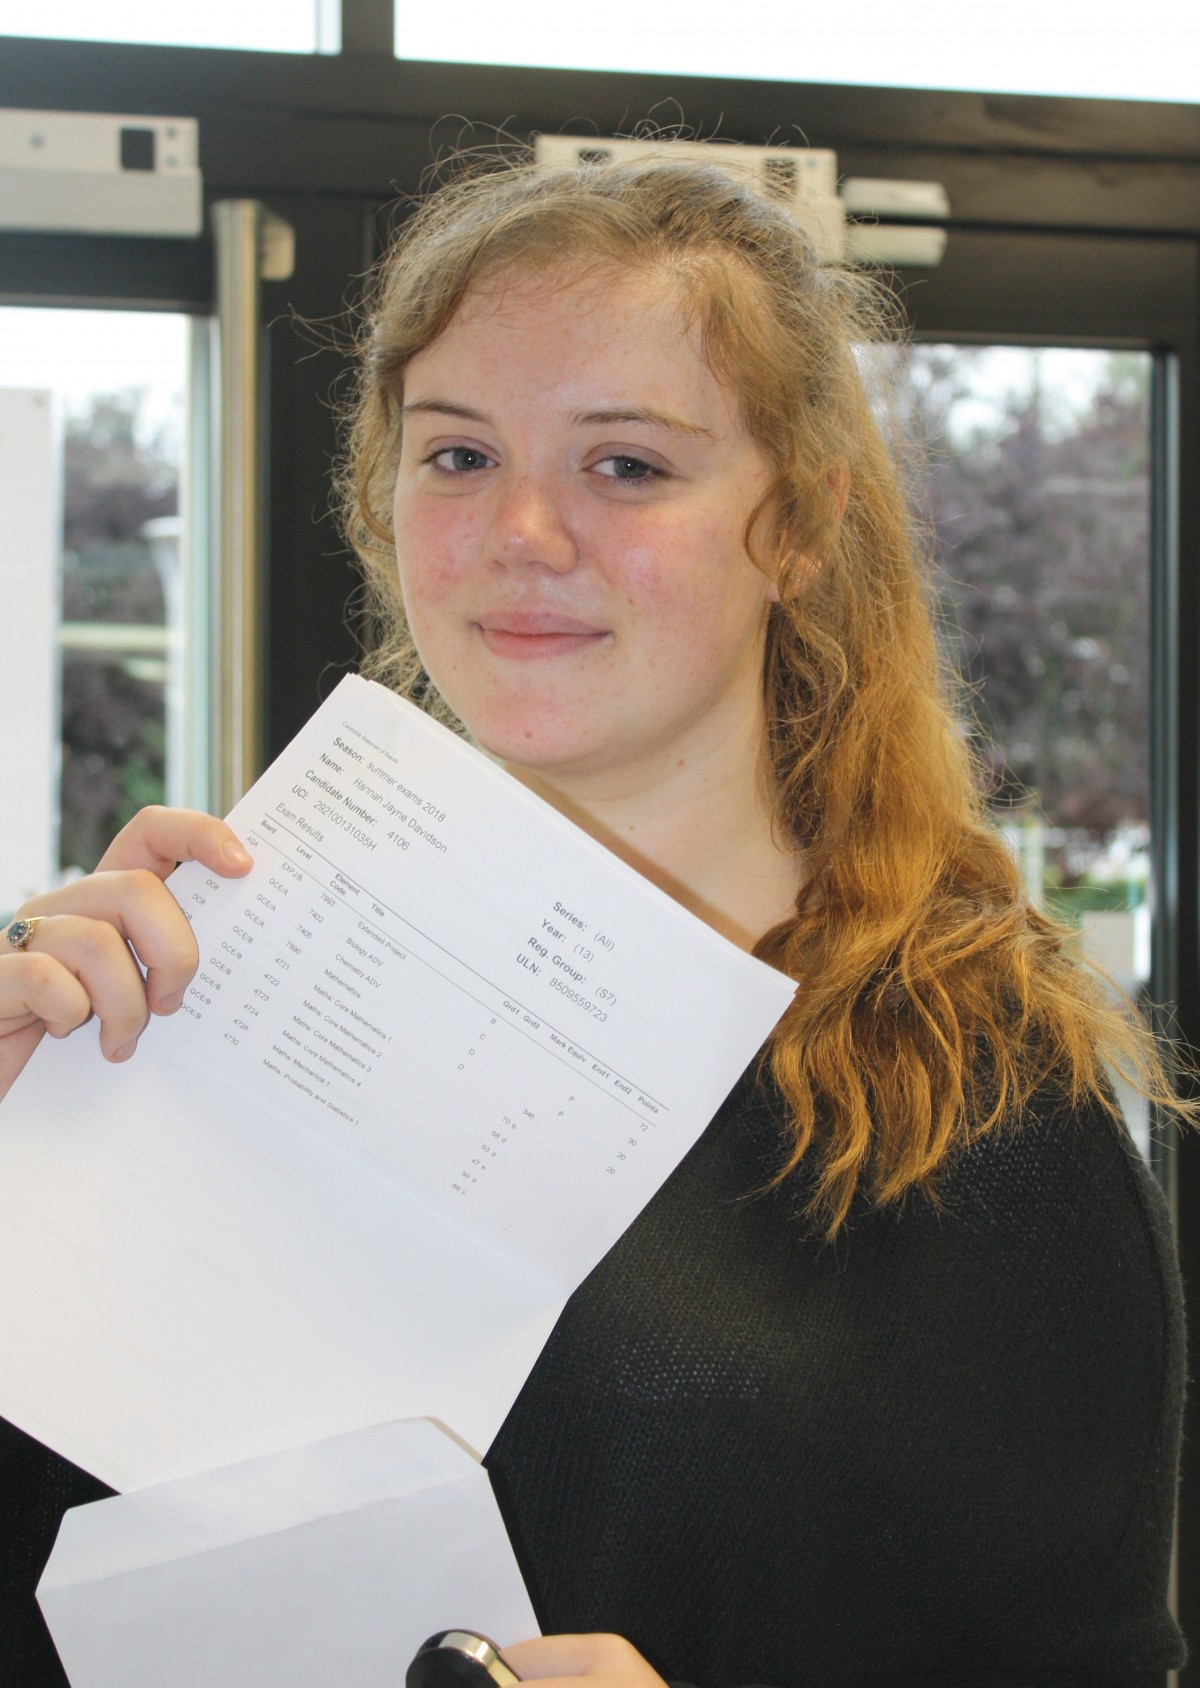 Candidate Statement of Results
Season: summer exams 2018
Name: Hannah Jayne Davidson
Candidate Number: 4106
UCI: 292100131035H
Series: (All)
Year: (13)
Reg. Group: (S7)
ULN: 8509559723
Exam Results
Board Level Element Code Title Grd1 Grd2 Mark Equiv End1 End2 Points
AQA EXPJ/B 7993 Extended Project B
GCE/A 7402 Biology ADV C P 72
GCE/A 7405 Chemistry ADV D P 30
OCR GCE/A 7890 Mathematics D 346 20
OCR GCE/B 4721 Maths: Core Mathematics 1 70 b 20
GCE/B 4722 Maths: Core Mathematics 2 58 d
GCE/B 4723 Maths: Core Mathematics 3 53 d
GCE/B 4724 Maths: Core Mathematics 4 47 e
GCE/B 4728 Maths: Mechanics 1 50 d
GCE/B 4732 Maths: Probability and Statistics 1 66 c